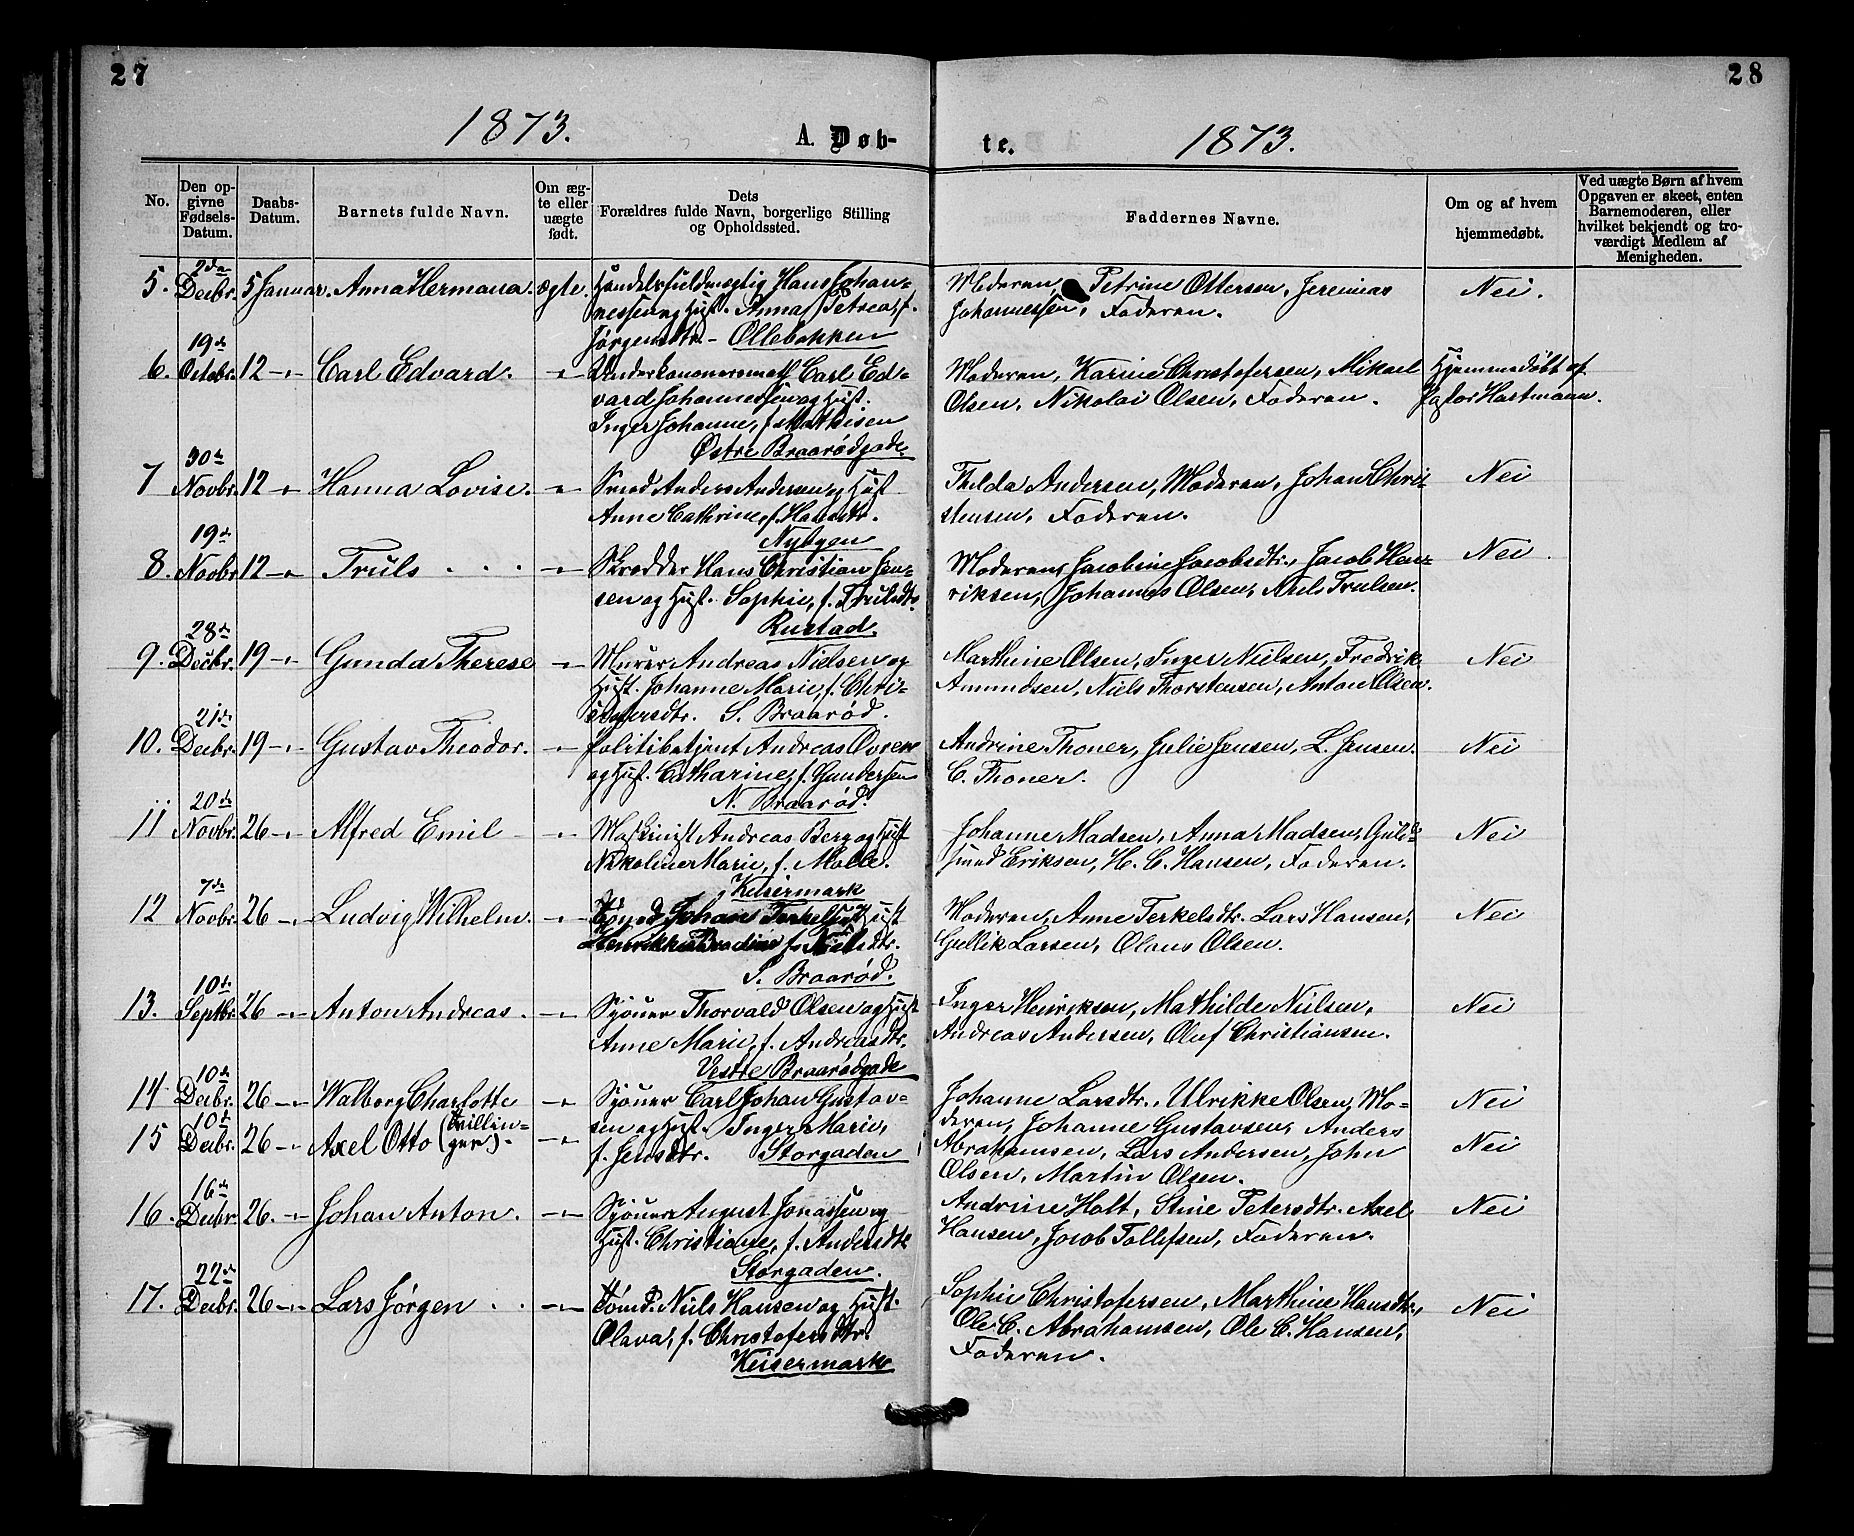 27
28
1873.
A. Døb-
te.
1873.
No.
Den op-
givne
Fødsels-
Datum.
Daabs-
Datum.
Barnets fulde Navn.
Om æg-
te eller
uægte
født.
Dets
Forældres fulde Navn, borgerlige Stilling
og Opholdssted.
Faddernes Navne.
Om og af hvem
hjemmedøbt.
Ved uægte Børn af hvem
Opgaven er skeet, enten
Barnemoderen, eller
hvilket bekjendt og tro-
værdigt Medlem af
Menigheden.
5. 2de Decbr. 5 Januar. Anna Hermana. ægte. Handelsfuldmægtig Hans Johan-
nessen og Hust. Anna Petrea, f.
Jørgensdtr. - Ollebakken
Moderen, Petrine Ottersen, Jeremias
Johannessen, Faderen.
Nei.
6. 19de Octobr. 12 -"- Carl Edvard. -"- Underkanoneer Carl Ed-
vard Johannessen og Hust.
Inger Johanne, f. Mathisen
Østre Braarødgade.
Moderen, Karine Christofersen, Mikael
Olsen, Nikolai Olsen, Faderen.
Hjemmedøbt af
Pastor Hartmann.
7 30te Novbr. 12 -"- Hanna Lovise. -"- Smed Anders Andersen og Hust
Anne Cathrine, f. Hansdtr.
Nybyen
Thilda Andersen, Moderen, Johan Chri-
stensen, Faderen.
Nei
8. 19de Novbr. 12 -"- Truls . . . -"- Skrædder Hans Christian Jen-
sen og Hust. Sophie, f. Trulsdtr.
Rustad.
Moderen, Jacobine Jacobsdtr., Jacob Hen-
riksen, Johannes Olsen, Axels Trulsen.
Nei.
9. 28de Decbr. 19 -"- Gunda Therese -"- Murer Andreas Nielsen og
Hust. Johanne Marie, f. Chri-
stofersdtr. S. Braarød.
Marthine Olsen, Inger Nielsen, Fredrik
Amundsen, Niels Thorstensen, Anton Olsen.
Nei
10. 21de Decbr. 19 -"- Gustav Theodor. -"- Politibetjent Andreas Ovrene
og Hust. Catharine, f. Gundersen
N. Braarød.
Andrine Thoner, Julie Jensen, L. Jensen.
C. Thoner.
Nei
11 20de Novbr. 26 -"- Alfred Emil -"- Maskinist Andreas Berg og Hust
Nikoline Marie, f. Malle.
Keisermark
Johanne Madsen, Anna Madsen, Guld-
smed Eriksen, H. C. Hansen, Faderen.
Nei
12 7de Novbr. 26 -"- Ludvig Wilhelm. -"- Johans Terkelsen og Hust
f. Nielsdtr.
S. Braarød.
Moderen, Anne Terkelsdtr. Lars Hansen,
Gullik Larsen, Olaus Olsen.
Nei
13. 10de Septbr. 26 -"- Anton Andreas. -"- Sjøuer Thorvald Olsen og Hust
Anne Marie, f. Andreasdtr.
Vestre Braarødgade
Inger Henriksen, Mathilde Nielsen,
Andreas Andersen, Oluf Christiansen.
Nei
14 10de Decbr. 26 -"- Walborg Charlotte -"- Sjøuer Carl Johan Gustav-
15 10de Decbr. 26 -"- Axel Otto (tvillin-
ger). -"- sen og Hust. Inger Marie,
f. Jensdtr. Storgaden
Johanne Larsdtr., Ulrikke Olsen, Mo-
deren, Johanne Gustavsen, Anders
Abrahamsen, Lars Andersen, John
Olsen, Martin Olsen.
Nei
Nei
16. 16de Decbr. 26. -"- Johan Anton. -"- Sjøuer August Jonassen og
Hust. Christiane, f. Andersdtr
Storgaden.
Andrine Holt, Stine Petersdtr. Axel
Hansen, Jacob Tollefsen, Faderen.
Nei
17. 22de Decbr. 26 -"- Lars Jørgen . . -"- Tømd. Niels Hansen og Hust.
Olava, f. Christofersdtr.
Keisermark
Sophie Christofersen, Marthine Hansdtr.,
Ole C. Abrahamsen, Ole C. Hansen,
Faderen.
Nei